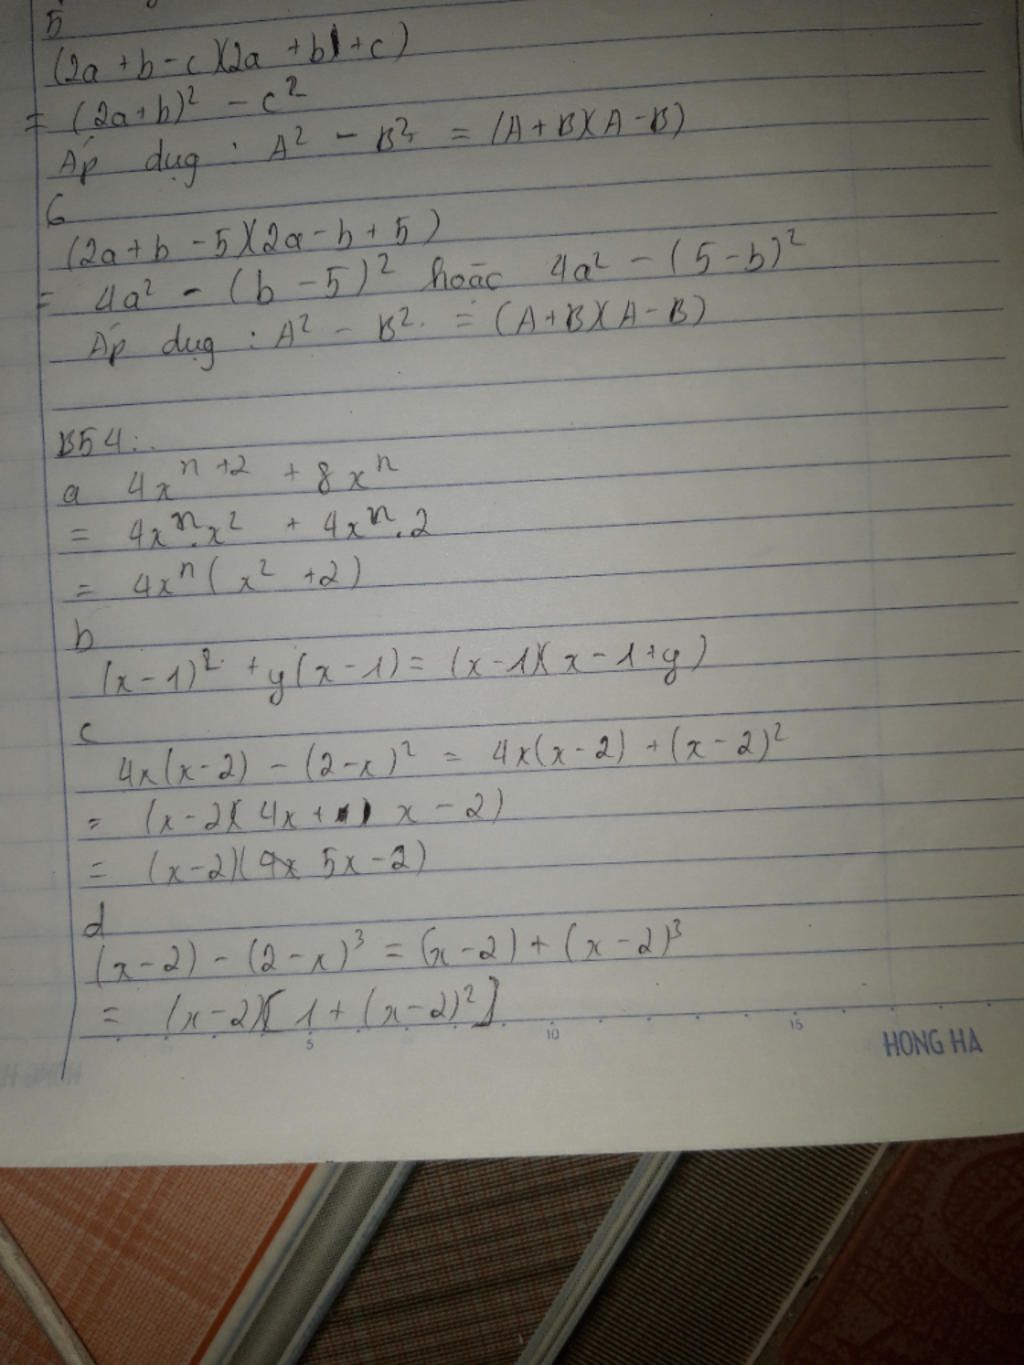 5
(2a + b - c)(2a + b + c)
= (2a+b)² - c²
Áp dụg : A² - B² = (A + B)(A - B)
6
(2a + b - 5)(2a - b + 5)
= 4a² - (b - 5)² hoặc 4a² - (5 - b)²
Áp dụg : A² - B² = (A + B)(A - B)
B54:.
a 4xⁿ⁺² + 8xⁿ
= 4xⁿ.x² + 4xⁿ.2
= 4xⁿ(x² + 2)
b
(x - 1)² + y(x - 1) = (x - 1)(x - 1 + y)
c
4x(x - 2) - (2 - x)² = 4x(x - 2) + (x - 2)²
= (x - 2)(4x + x - 2)
= (x - 2)(5x - 2)
d
(x - 2) - (2 - x)³ = (x - 2) + (x - 2)³
= (x - 2)[1 + (x - 2)²]
5 10 15
HONG HA